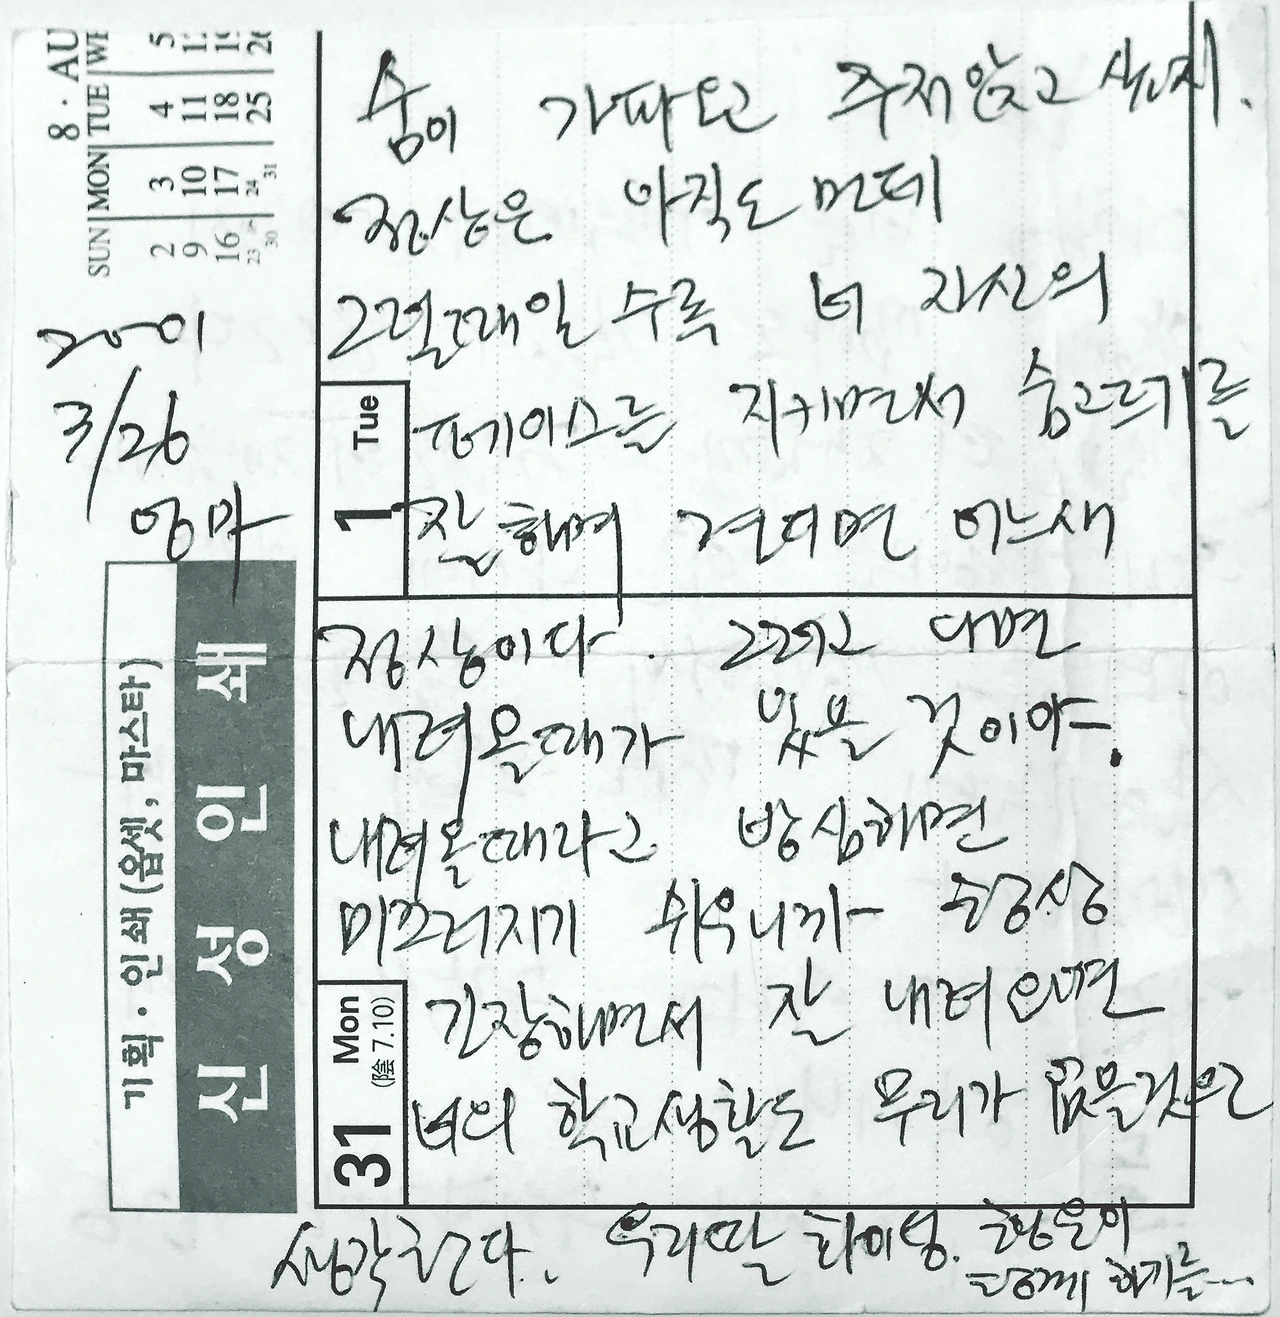 숨이 가파오고 주저앉고 싶지.
정상은 아직도 먼데
그럴때일수록 너 자신의
페이스를 지키면서 숨고르기를
잘 해며 견디면 어느새
정상이다. 그러고 나면
내려올때가 있을 것이야.
내려올때라고 방심하면
미끄러지기 쉬우니까 항상
긴장하면서 잘 내려오면
너의 학교생활도 무리가 없을것으로
생각한다. 우리딸 화이팅. 행운이
함께 하기를...
2001
3/26
엄마
8 · AU
SUN MON TUE WE
2 3 4 5
9 10 11 12
16 17 18 19
23 24 25 26
30 31
1 Tue
31 Mon
(陰 7.10)
기획 · 인쇄 (옵셋, 마스타)
신성인쇄